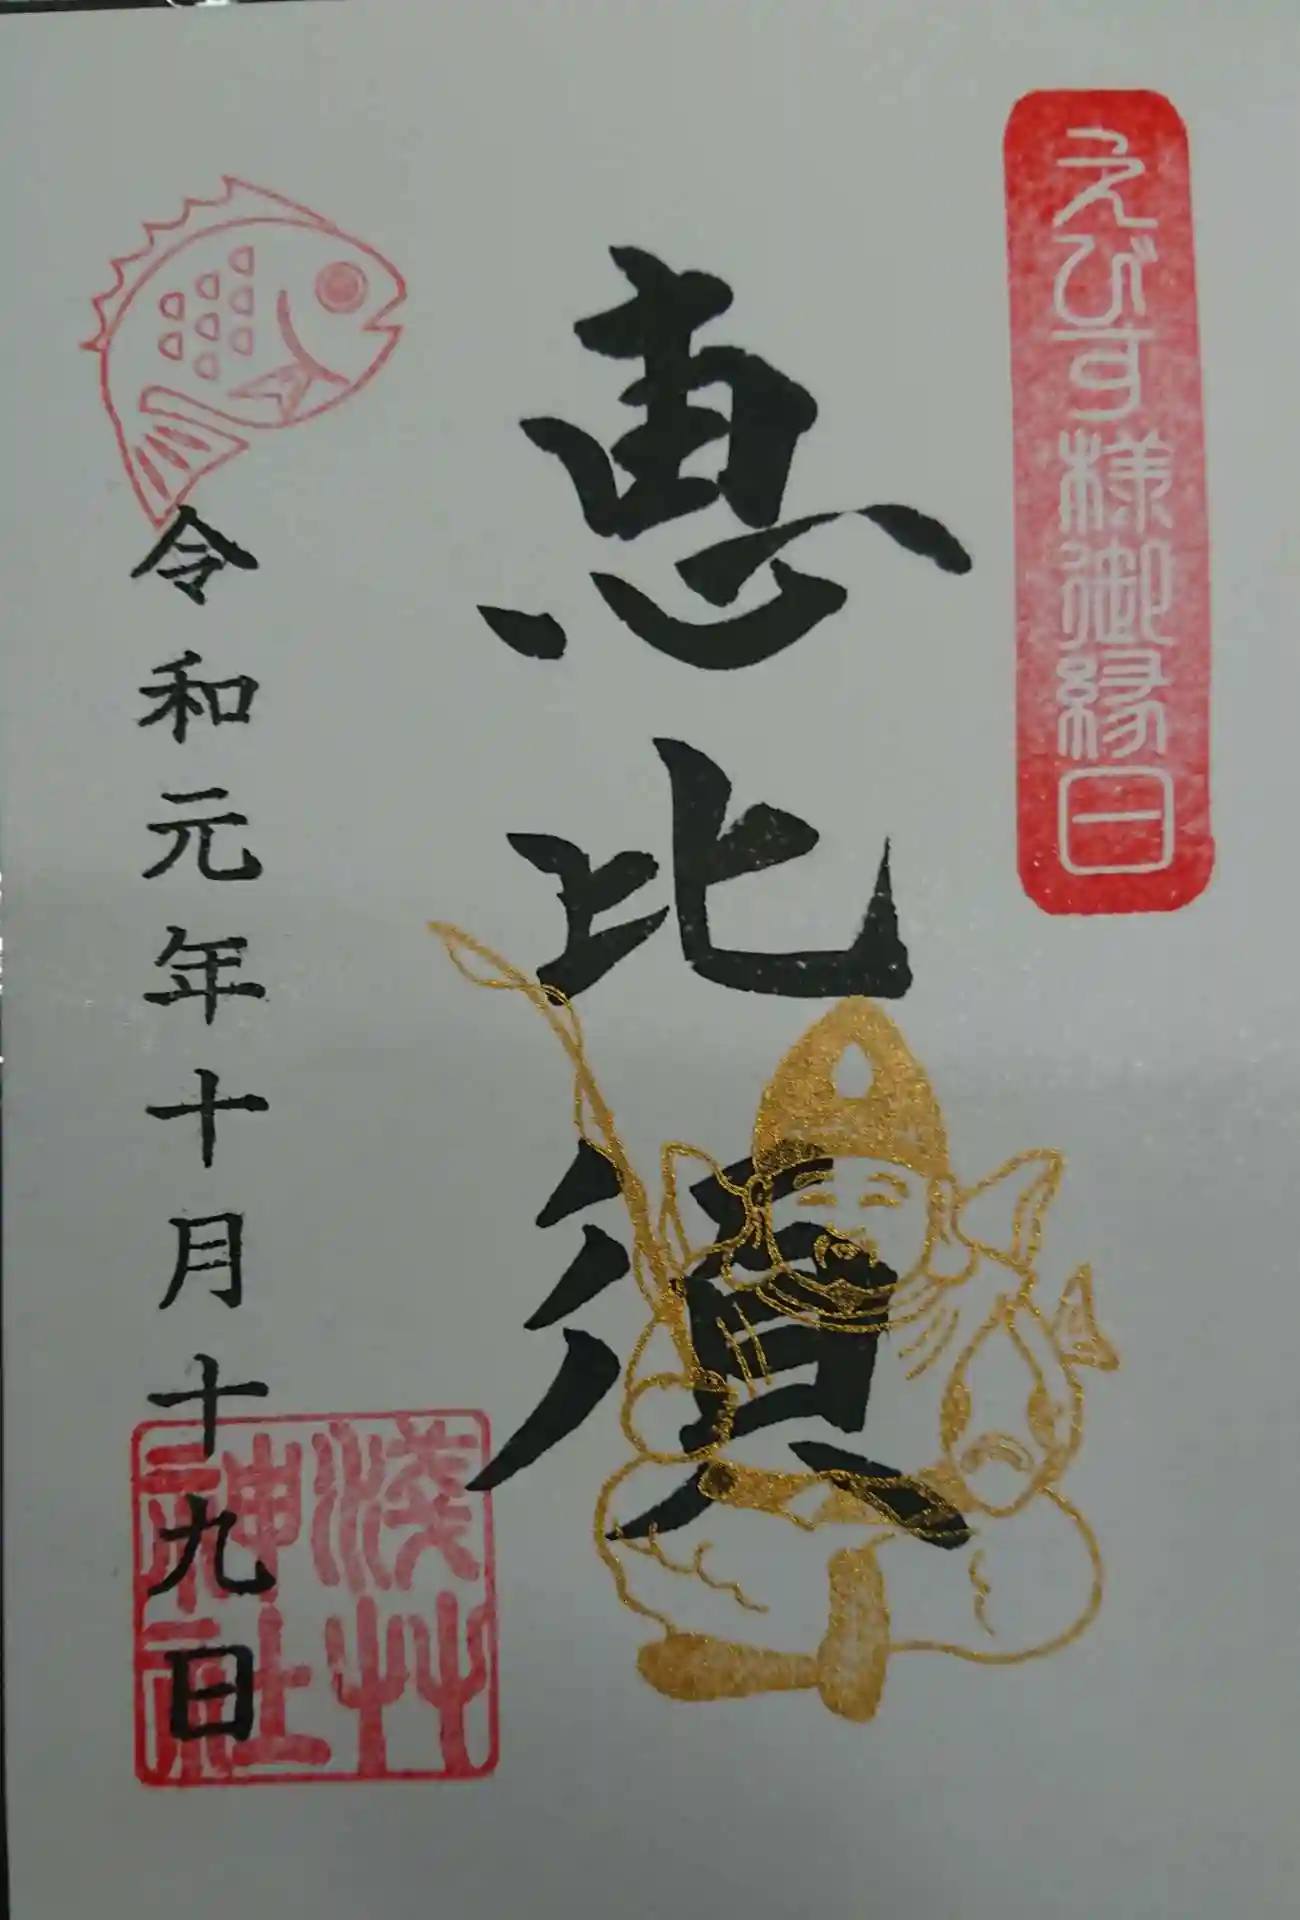 えびす様御縁日
恵比須
令和元年十月十九日
淺艸神社